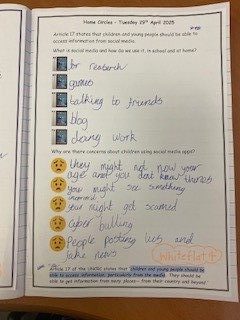 Home Circles - Tuesday 29th April 2025
Article 17 states that children and young people should be able to
access information from social media.
What is social media and how do we use it, in school and at home?
for research
games
talking to friends
blog
doing work
Why are there concerns about children using social media apps?
they might not now your
age and you dont know things
you might see something
your might get scamed
cyber bulling
People posting lies and
fake news
Whiteflat
Article 17 of the UNCRC states that children and young people should be
able to access information, particularly from the media. They should
be able to get information from many places - from their country and beyond